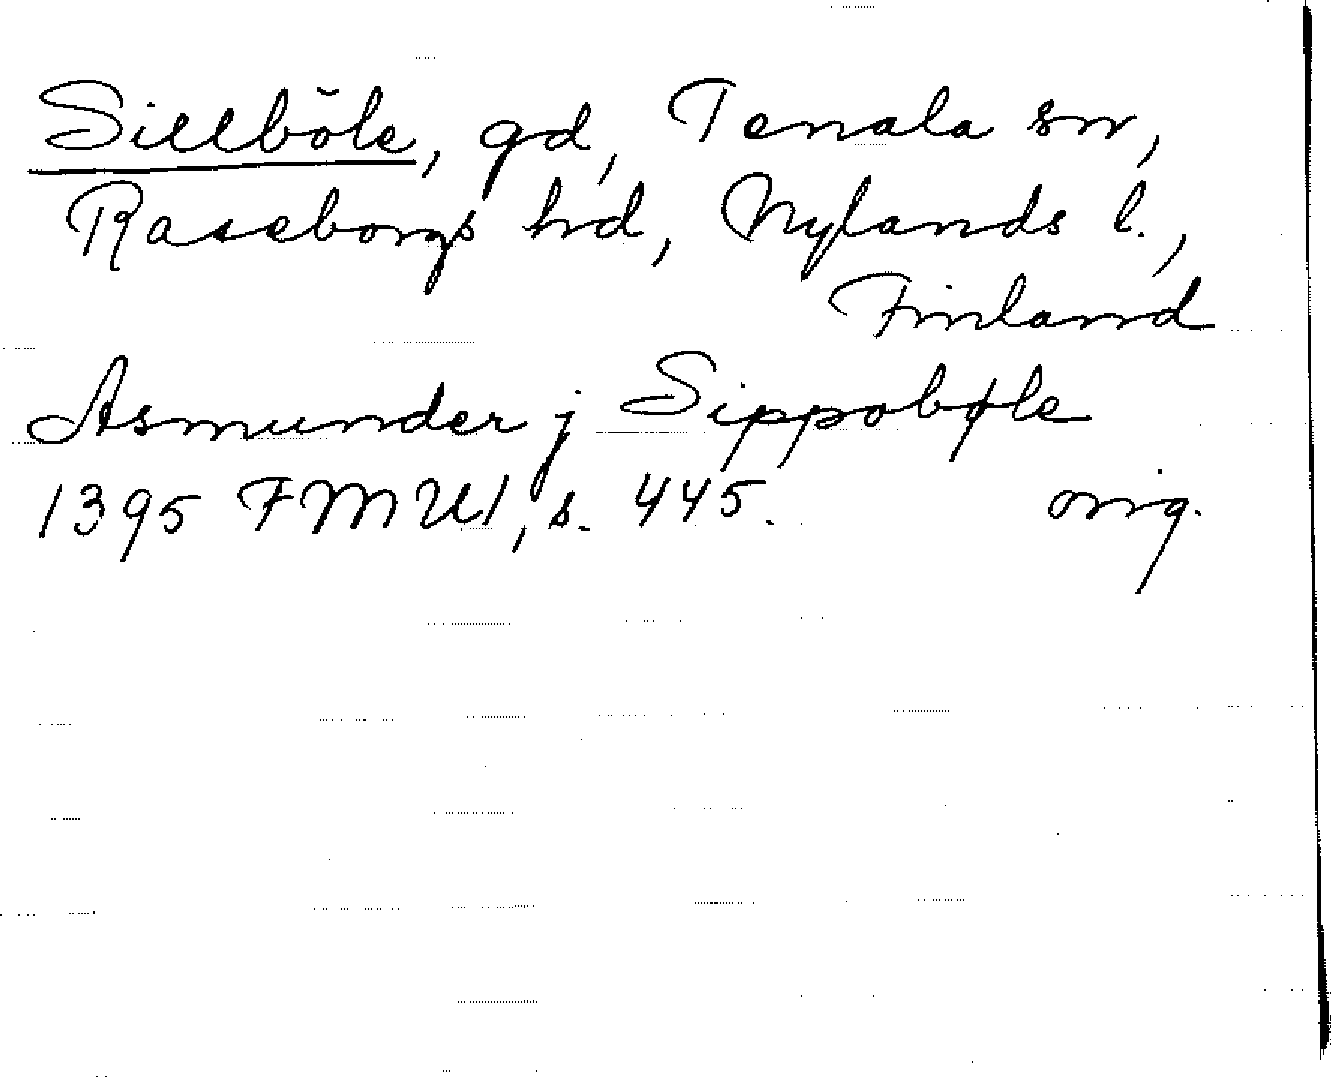 Sillböle, gd, Tenala sn,
Raseborgs hd, Nylands l.,
Finland
Asmunder j Sippobøle
1395 FMU I, s. 445. orig.